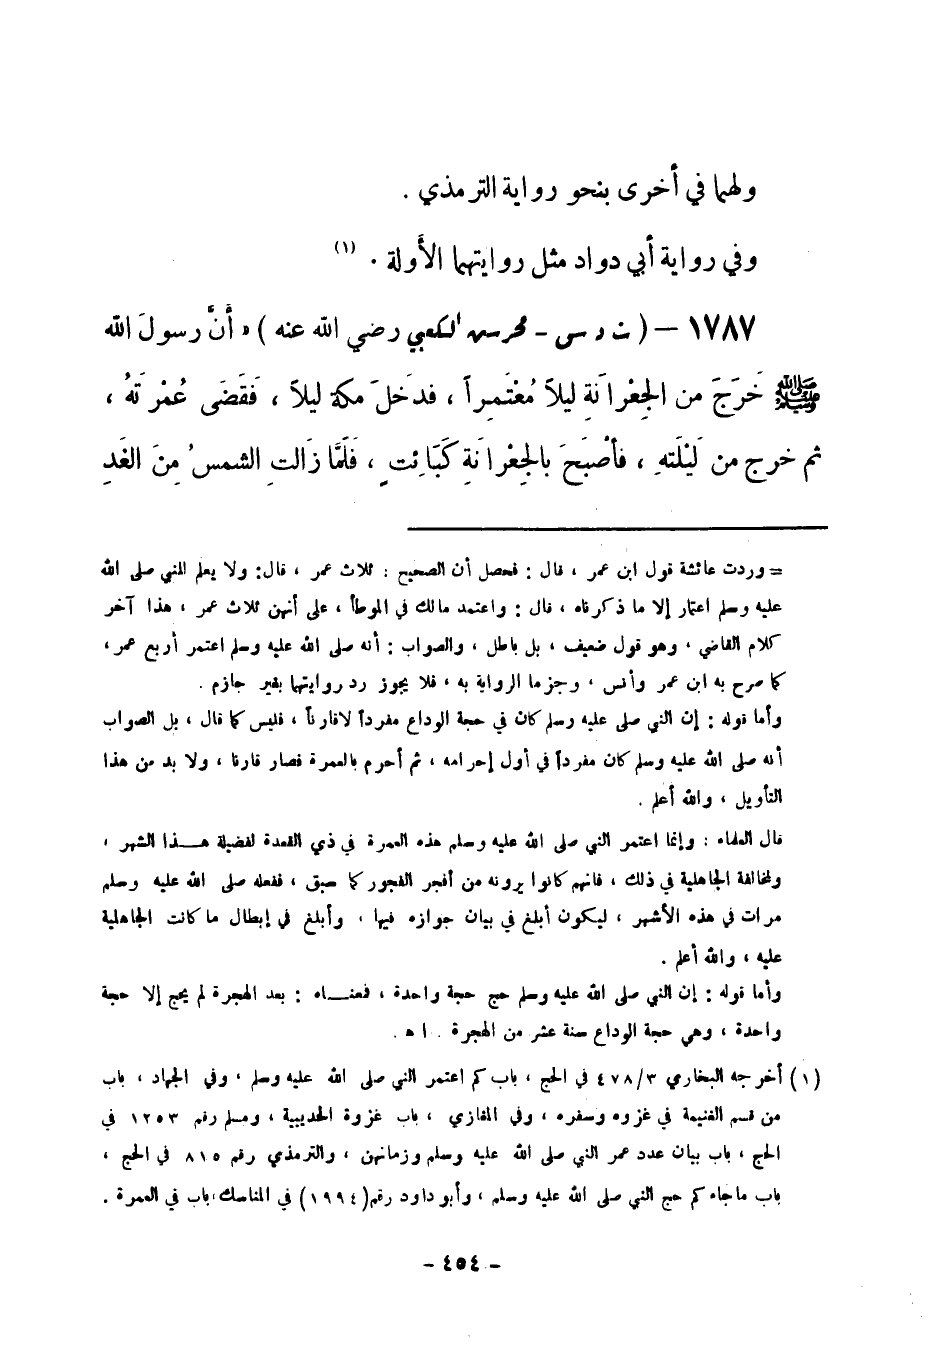 ولهما في أخرى بنحو رواية الترمذي .
وفي رواية أبي دواد مثل روايتهما الأولة . (١)
١٧٨٧ – ( ت د س – محرش الكعبي رضي الله عنه ) « أَنَّ رسولَ الله
ﷺ خَرَجَ من الجِعْرانَةِ ليلاً مُعْتَمِراً ، فدَخلَ مكة ليلاً ، فَقَضَى عُمْرَتهُ ،
ثم خرج من لَيْلَتهِ ، فأصْبَحَ بالجِعْرانَةِ كَبَائتٍ ، فَلَمَّا زَالتِ الشمسُ مِنَ الغَدِ
= وردت عائشة قول ابن عمر ، قال : فحصل أن الصحيح : ثلاث عمر ، قال: ولا يعلم للنبي صلى الله
عليه وسلم اعتمار إلا ما ذكرناه ، قال : واعتمد مالك في الموطأ ، على أنهن ثلاث عمر ، هذا آخر
كلام القاضي ، وهو قول ضعيف ، بل باطل ، والصواب : أنه صلى الله عليه وسلم اعتمر أربع عمر ،
كما صرح به ابن عمر وأنس ، وجزما الرواية به ، فلا يجوز رد روايتهما بغير جازم .
وأما قوله : إن النبي صلى عليه وسلم كان في حجة الوداع مفرداً لا قارناً ، فليس كما قال ، بل الصواب
أنه صلى الله عليه وسلم كان مفرداً في أول إحرامه ، ثم أحرم بالعمرة فصار قارنا ، ولا بد من هذا
التأويل ، والله أعلم .
قال العلماء : وإنما اعتمر النبي صلى الله عليه وسلم هذه العمرة في ذي القعدة لفضيلة هـذا الشهر ،
ولمخالفة الجاهلية في ذلك ، فانهم كانوا يرونه من أفجر الفجور كما سبق ، ففعله صلى الله عليه وسلم
مرات في هذه الأشهر ، ليكون أبلغ في بيان جوازه فيها ، وأبلغ في إبطال ما كانت الجاهلية
عليه ، والله أعلم .
وأما قوله : إن النبي صلى الله عليه وسلم حج حجة واحدة ، فمعنـاه : بعد الهجرة لم يحج إلا حجة
واحدة ، وهي حجة الوداع سنة عشر من الهجرة . ا ه .
(١) أخرجه البخاري ٤٧٨/٣ في الحج ، باب كم اعتمر النبي صلى الله عليه وسلم ، وفي الجهاد ، باب
من قسم الغنيمة في غزوه وسفره ، وفي المغازي ، باب غزوة الحديبية ، ومسلم رقم ١٢٥٣ في
الحج ، باب بيان عدد عمر النبي صلى الله عليه وسلم وزمانهن ، والترمذي رقم ٨١٥ في الحج ،
باب ما جاء كم حج النبي صلى الله عليه وسلم ، وأبو داود رقم (١٩٩٤) في المناسك ، باب في العمرة .
– ٤٥٤ –